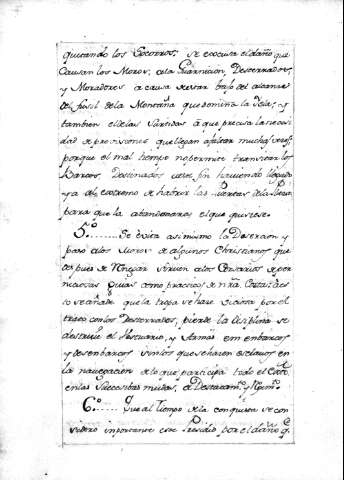 quitando los Socorros, se excusa el daño que
causan los Moros, ala Guarnicion, Desterrados,
y Moradores a causa de estar bajo del alcance
del fusil dela Montaña que domina la Isla, y
tambien el delas Partidas à que precisa la necesi
dad de provisiones que llegan afaltar muchas veces,
porque el mal tiempo no permite transitar los
Barcos, Destinados aeste fin haviendo llegado
ya al extremo de habrir las Puertas dela Plaza
para que la abandonaran el que quisiese.
5º Se evita asimismo la Desercion y
paso alos Moros de algunos Christianos que
despues de Renegar sirven alos Corsarios de per
niciosas Guias como practicos de nrã Costa: à es
to se añade que la tropa se hace viciosa por el
trato conlos Desterrados, pierde la disciplina se
destruie el Vestuario, y Armas en embarcos
y desembarcos sin los que se hacen esclavos en
la navegacion de lo que participa todo el Extº
en las Succesibas mudas, de Destacamtos
6º Que al Tiempo dela conquista se con
sidero importante este Presidio por el daño q.